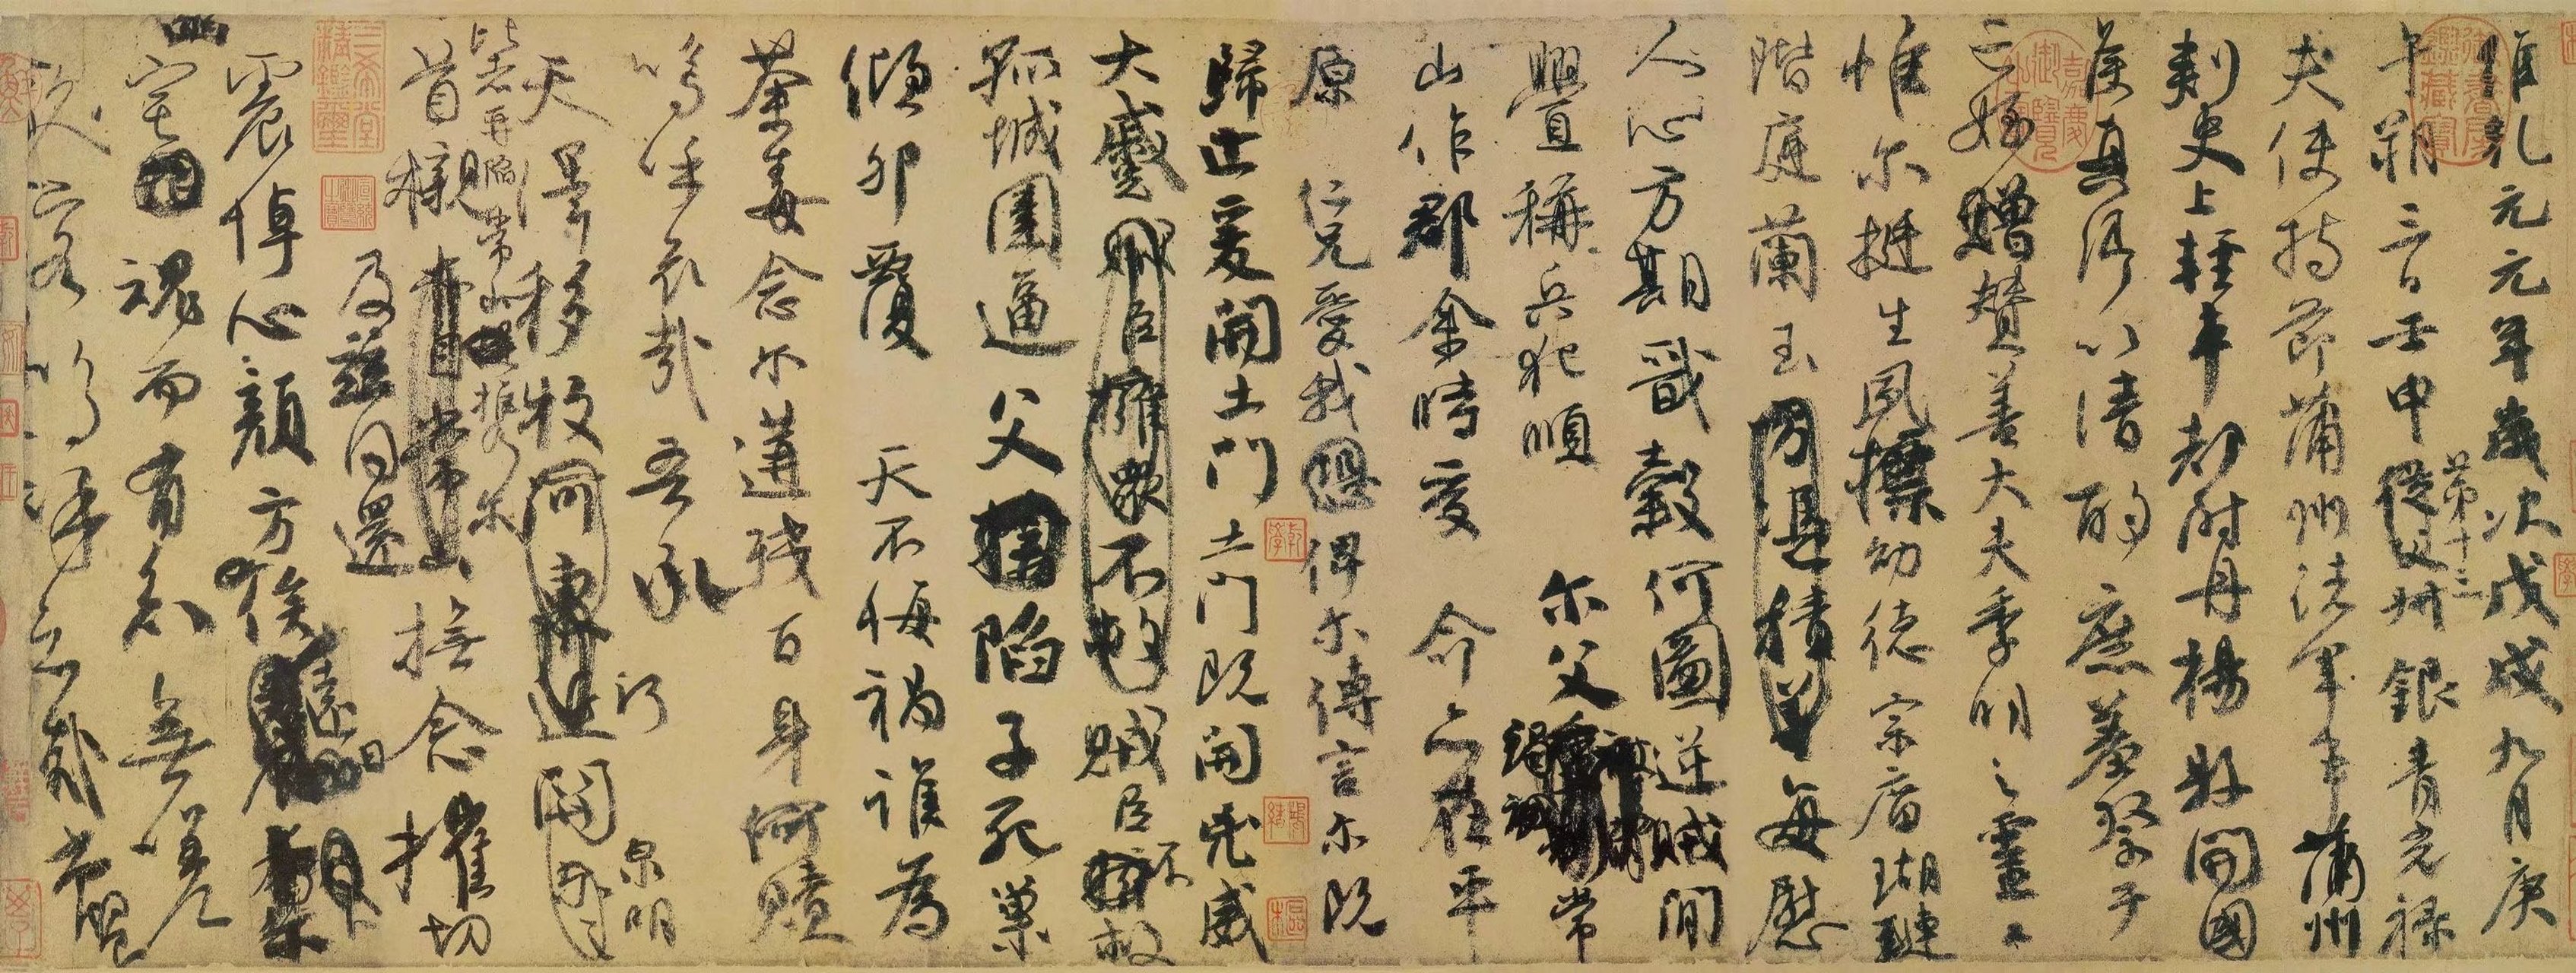 維乾元元年歲次戊戌九月庚
午朔三日壬申第十三從父叔銀青光祿
夫使持節蒲州諸軍事蒲州
刺史上輕車都尉丹楊縣開國
侯真卿以清酌庶羞祭于
亡姪贈贊善大夫季明之靈曰
惟爾挺生夙標幼德宗廟瑚璉
階庭蘭玉方憑積善每慰
人心方期戩穀何圖逆賊閒
釁稱兵犯順爾父竭誠常
山作郡余時受命亦在平
原仁兄愛我恐俾爾傳言爾既
歸止爰開土門土門既開兇威
大蹙賊臣擁眾不救賊臣不救
孤城圍逼父擒陷子死巢
傾卵覆天不悔禍誰為
荼毒念爾遘殘百身何贖
嗚呼哀哉吾承
天澤移牧河東近河關泉明
比者再陷常山攜爾
首櫬亦自常山及茲同還撫念摧切
震悼心顏方俟遠日
卜爾幽宅魂而有知無嗟
久客嗚呼哀哉尚饗